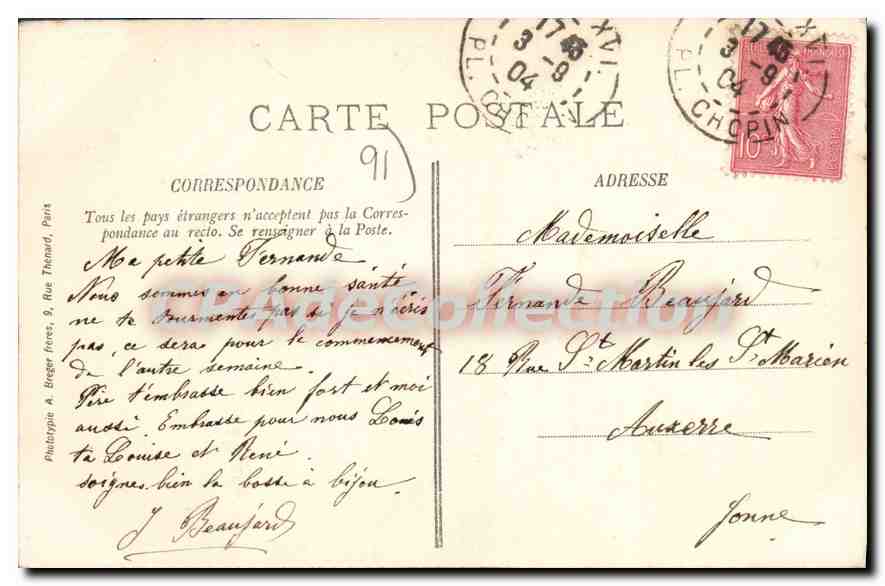 CARTE POSTALE
91
CORRESPONDANCE
Tous les pays étrangers n'acceptent pas la Corres-
pondance au recto. Se renseigner à la Poste.
Ma petite Fernande
Nous sommes en bonne santé
ne te tourmentes pas si je n'écris
pas, ce sera pour le commencement
de l'autre semaine.
Père t'embrasse bien fort et moi
aussi. Embrasse pour nous Louis
ta Louise et René.
soignes bien la bosse à bijou.
J Beaujard
Phototypie A. Breger frères, 9, Rue Thénard, Paris
ADRESSE
Mademoiselle
Fernande Beaujard
18 Rue St Martin les St Marien
Auxerre
Yonne
XVI
17 45
3 - 9
04
PL. CHOPIN
XVI
17 45
3 - 9
04
PL. CHOPIN
10
CPAdeCollection